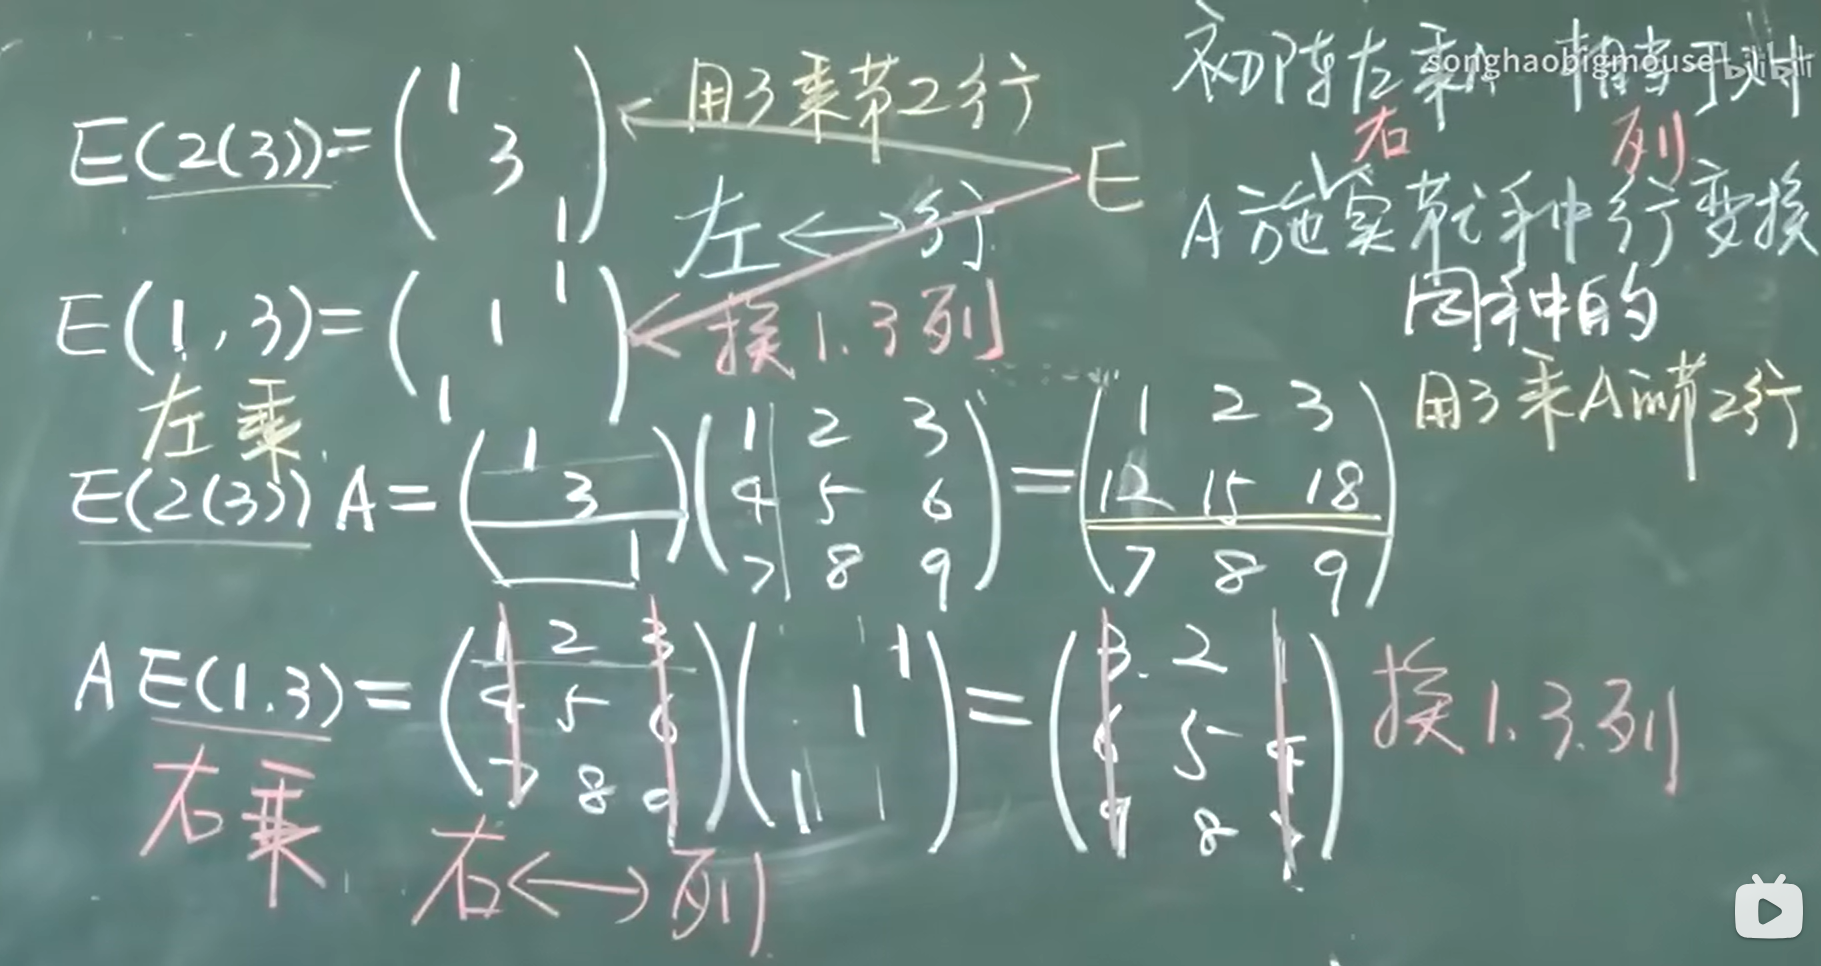 E(2(3))=(1 3 1) 用3乘第2行 E
左⟷行
E(1,3)=(1 1 1) 换1.3列
左乘
E(2(3))A=(1 3 1)(1 2 3
4 5 6
7 8 9)=(1 2 3
12 15 18
7 8 9)
AE(1.3)=(1 2 3
4 5 6
7 8 9)(1
1
1)=(3 2 1
6 5 4
9 8 7) 换1.3.列
右乘
右⟷列
初阵左乘A 相当于对
右 列
A施实 同种行变换
同种的
用3乘A的第2行
songhaobigmouse bilibili